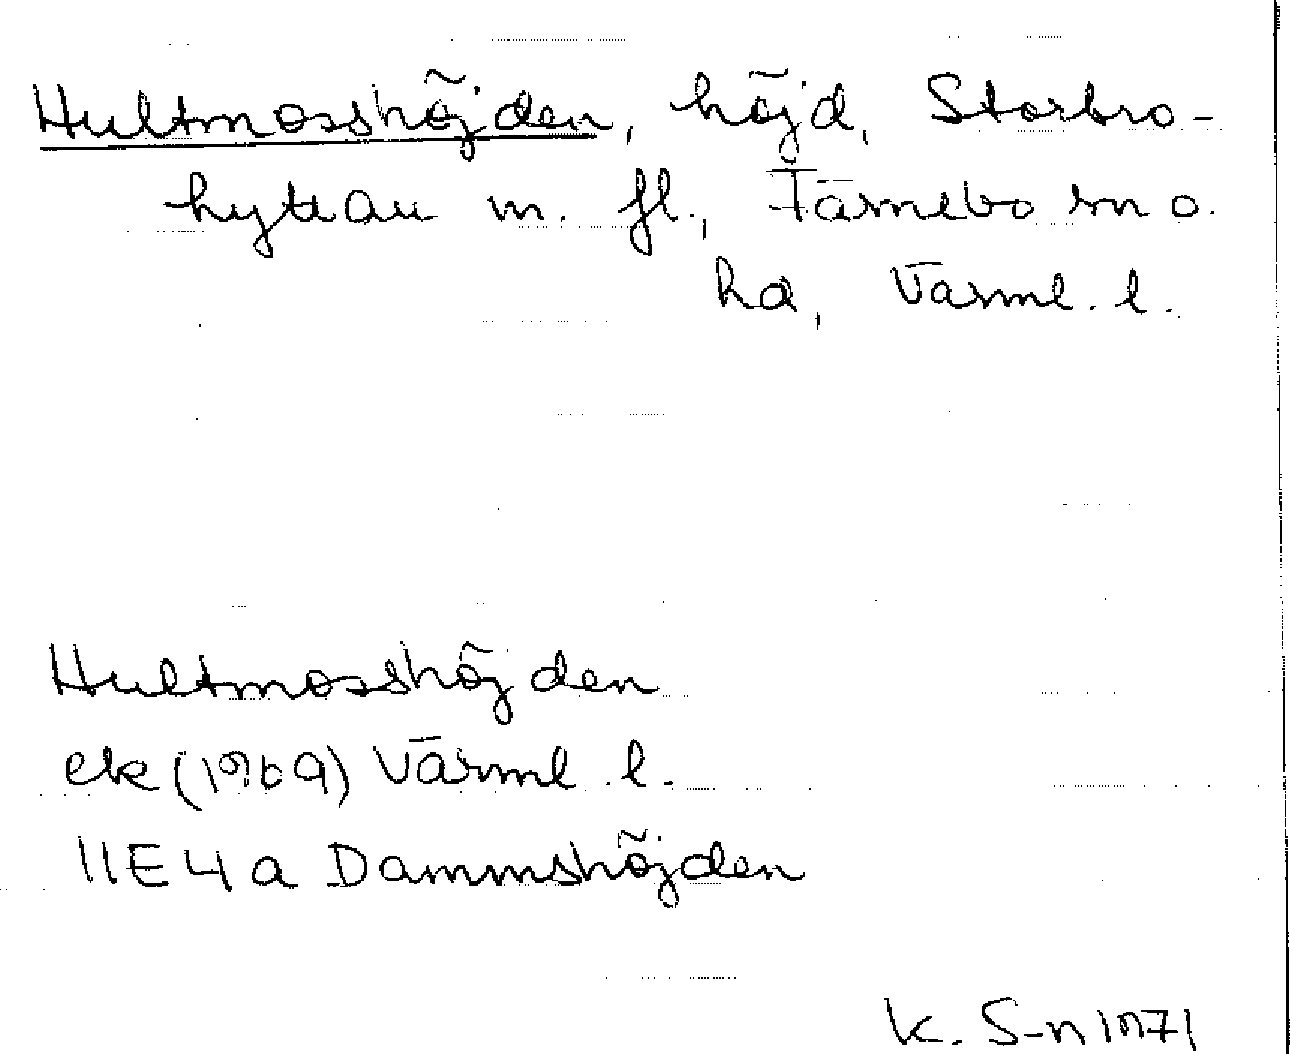 Hultmosshöjden, höjd, Storbro-
hyttan m. fl., Färnebo sn o.
hd, Värml. l.
Hultmosshöjden
ek (1969) Värml. l.
11E4a Dammshöjden
K. S-n 1971